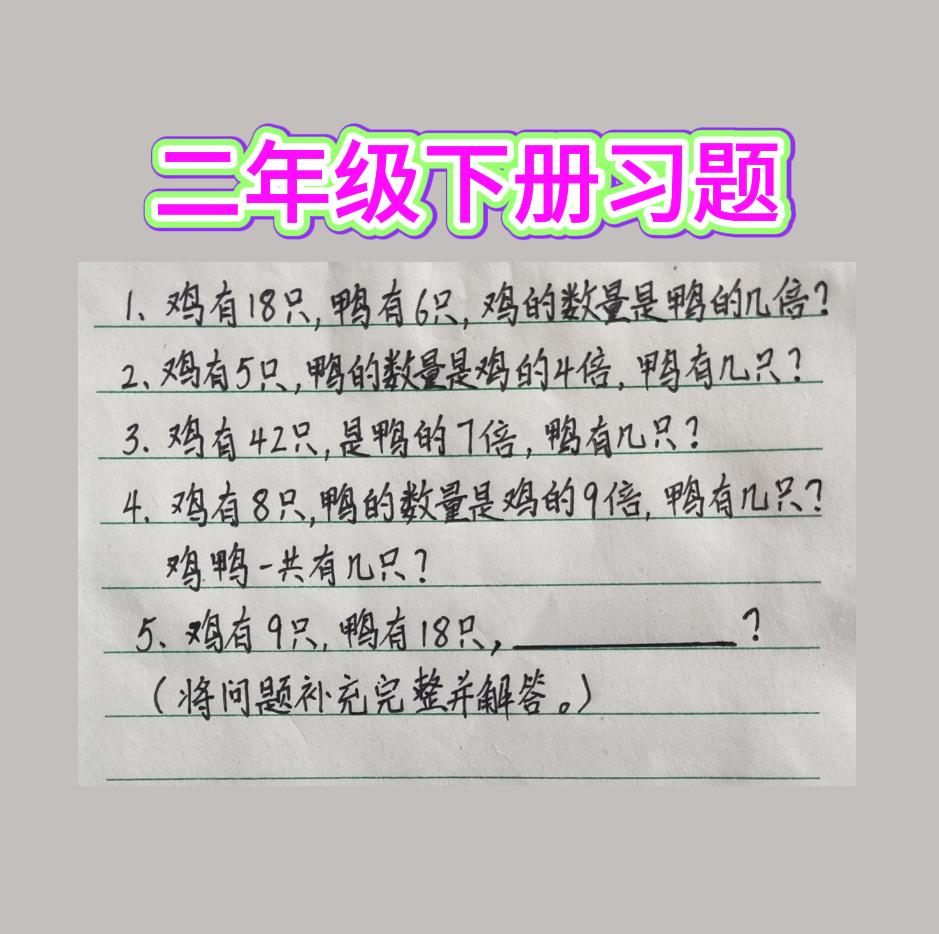 二年级下册习题
1、鸡有18只,鸭有6只,鸡的数量是鸭的几倍?
2、鸡有5只,鸭的数量是鸡的4倍,鸭有几只?
3、鸡有42只,是鸭的7倍,鸭有几只?
4、鸡有8只,鸭的数量是鸡的9倍,鸭有几只?
鸡鸭一共有几只?
5、鸡有9只,鸭有18只,__________?
(将问题补充完整并解答。)